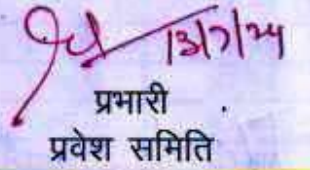 13/7/24
प्रभारी .
प्रवेश समिति